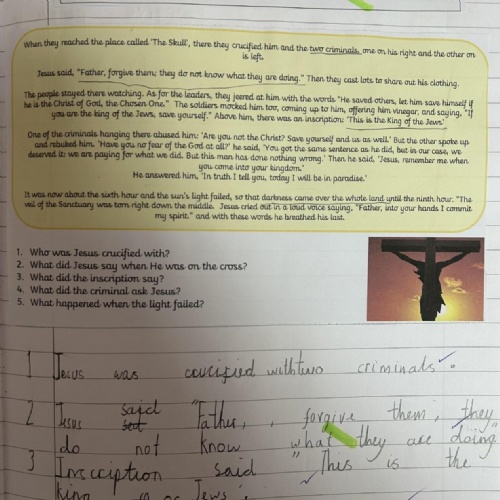 When they reached the place called 'The Skull', there they crucified him and the two criminals, one on his right and the other on
is left.
Jesus said, "Father, forgive them; they do not know what they are doing." Then they cast lots to share out his clothing.
The people stayed there watching. As for the leaders, they jeered at him with the words "He saved others, let him save himself if
he is the Christ of God, the Chosen One." The soldiers mocked him too, coming up to him, offering him vinegar, and saying, "If
you are the king of the Jews, save yourself." Above him, there was an inscription: 'This is the King of the Jews'
One of the criminals hanging there abused him: 'Are you not the Christ? Save yourself and us as well.' But the other spoke up
and rebuked him. 'Have you no fear of the God at all?' he said, 'You got the same sentence as he did, but in our case, we
deserved it: we are paying for what we did. But this man has done nothing wrong.' Then he said, 'Jesus, remember me when
you come into your kingdom.'
He answered him, 'In truth I tell you, today I will be in paradise.'
It was now about the sixth hour and the sun's light failed, so that darkness came over the whole land until the ninth hour. "The
veil of the Sanctuary was torn right down the middle. Jesus cried out in a loud voice saying, "Father, into your hands I commit
my spirit." and with these words he breathed his last.
1. Who was Jesus crucified with?
2. What did Jesus say when He was on the cross?
3. What did the inscription say?
4. What did the criminal ask Jesus?
5. What happened when the light failed?
1 Jesus was crucified with two criminals.
2 Jesus said "Father, forgive them, they
do not know what they are doing"
3 Inscription said "This is the
king Jews'